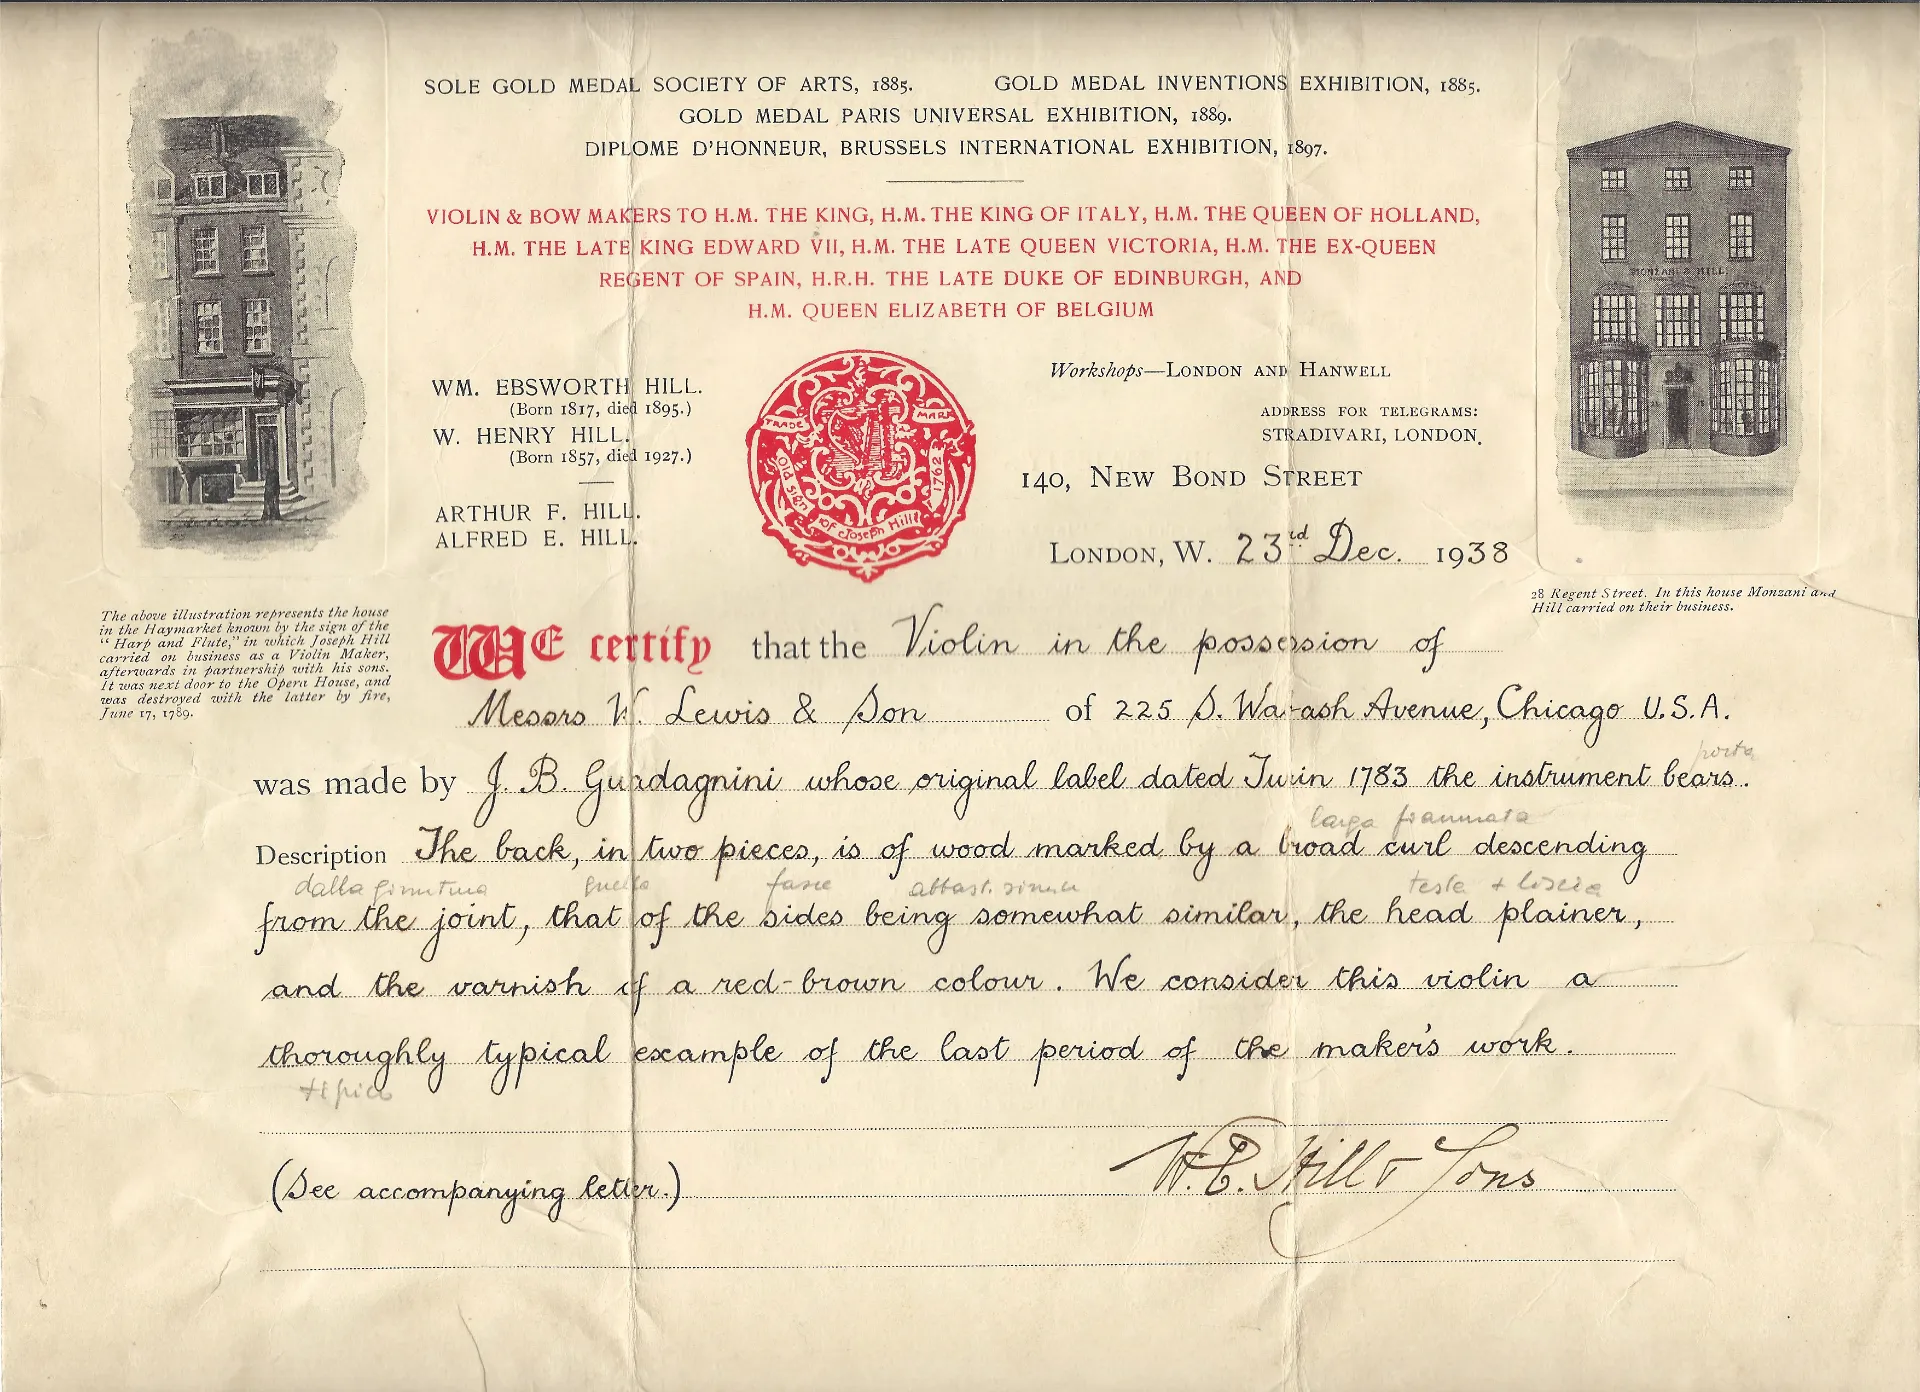 SOLE GOLD MEDAL SOCIETY OF ARTS, 1885. GOLD MEDAL INVENTIONS EXHIBITION, 1885.
GOLD MEDAL PARIS UNIVERSAL EXHIBITION, 1889.
DIPLOME D'HONNEUR, BRUSSELS INTERNATIONAL EXHIBITION, 1897.
VIOLIN & BOW MAKERS TO H.M. THE KING, H.M. THE KING OF ITALY, H.M. THE QUEEN OF HOLLAND,
H.M. THE LATE KING EDWARD VII, H.M. THE LATE QUEEN VICTORIA, H.M. THE EX-QUEEN
REGENT OF SPAIN, H.R.H. THE LATE DUKE OF EDINBURGH, AND
H.M. QUEEN ELIZABETH OF BELGIUM
WM. EBSWORTH HILL.
(Born 1817, died 1895.)
W. HENRY HILL.
(Born 1857, died 1927.)
ARTHUR F. HILL.
ALFRED E. HILL.
TRADE MARK
Old sign of Joseph Hill
1762
Workshops—LONDON AND HANWELL
ADDRESS FOR TELEGRAMS:
STRADIVARI, LONDON.
140, NEW BOND STREET
LONDON, W. 23rd Dec. 1938
MONZANI & HILL
The above illustration represents the house
in the Haymarket known by the sign of the
"Harp and Flute," in which Joseph Hill
carried on business as a Violin Maker,
afterwards in partnership with his sons.
It was next door to the Opera House, and
was destroyed with the latter by fire,
June 17, 1789.
28 Regent Street. In this house Monzani and
Hill carried on their business.
WE certify that the Violin in the possession of
Messrs W. Lewis & Son of 225 S. Wabash Avenue, Chicago U.S.A.
porta
was made by J. B. Guadagnini whose original label dated Turin 1783 the instrument bears.
larga fiammata
Description The back, in two pieces, is of wood marked by a broad curl descending
dalla giuntura quello fasce
teste + liscia
from the joint, that of the sides being somewhat similar, the head plainer,
and the varnish of a red-brown colour. We consider this violin a
thoroughly typical example of the last period of the maker's work.
tipico
(See accompanying letter.)
W.E. Hill & Sons